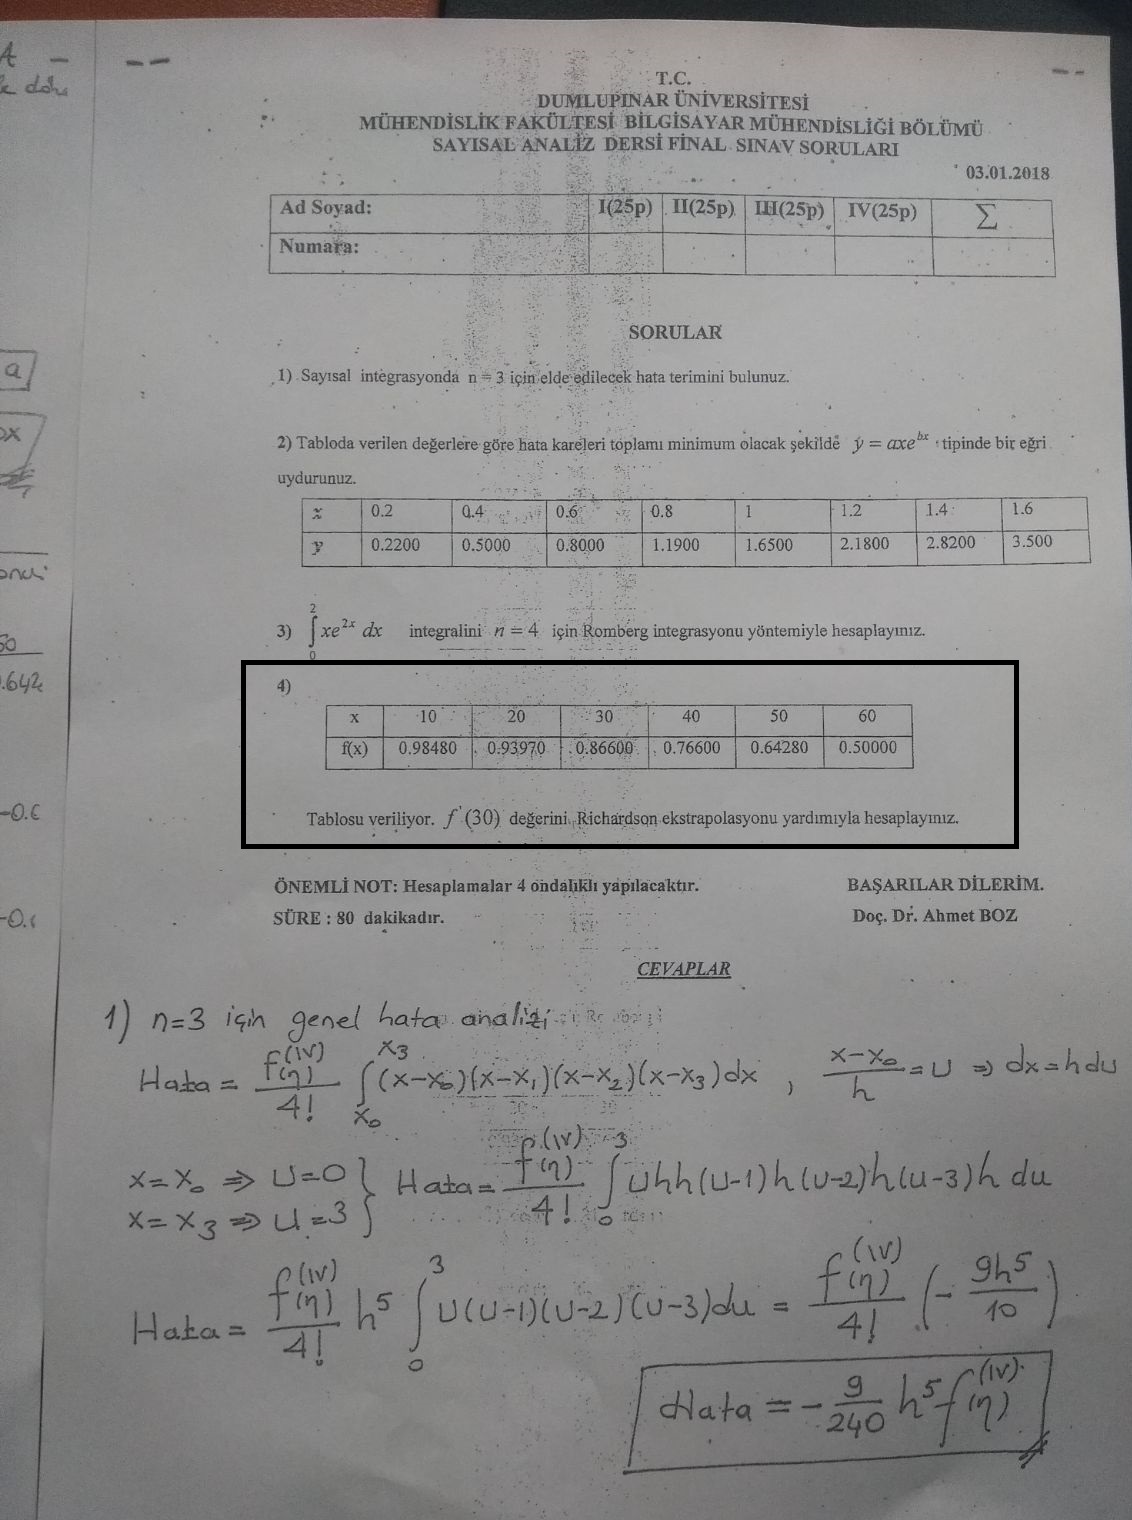 A —
k daha
T.C.
DUMLUPINAR ÜNİVERSİTESİ
MÜHENDİSLİK FAKÜLTESİ BİLGİSAYAR MÜHENDİSLİĞİ BÖLÜMÜ
SAYISAL ANALİZ DERSİ FİNAL SINAV SORULARI
03.01.2018
Ad Soyad: I(25p) II(25p) III(25p) IV(25p) Σ
Numara:
SORULAR
a
1) Sayısal integrasyonda n = 3 için elde edilecek hata terimini bulunuz.
2) Tabloda verilen değerlere göre hata kareleri toplamı minimum olacak şekilde y = axe^{bx} tipinde bir eğri
uydurunuz.
x 0.2 0.4 0.6 0.8 1 1.2 1.4 1.6
y 0.2200 0.5000 0.8000 1.1900 1.6500 2.1800 2.8200 3.500
3) ∫_0^2 xe^{2x} dx integralini n = 4 için Romberg integrasyonu yöntemiyle hesaplayınız.
.642
4)
x 10 20 30 40 50 60
f(x) 0.98480 0.93970 0.86600 0.76600 0.64280 0.50000
Tablosu veriliyor. f'(30) değerini Richardson ekstrapolasyonu yardımıyla hesaplayınız.
ÖNEMLİ NOT: Hesaplamalar 4 ondalıklı yapılacaktır. BAŞARILAR DİLERİM.
SÜRE : 80 dakikadır. Doç. Dr. Ahmet BOZ
CEVAPLAR
1) n=3 için genel hata analizi
Hata = f^{(IV)}(η)/4! ∫_{x_0}^{x_3} (x-x_0)(x-x_1)(x-x_2)(x-x_3)dx , (x-x_0)/h = U ⇒ dx=hdu
x=x_0 ⇒ U=0 } Hata = f^{(IV)}(η)/4! ∫_0^3 Uhh(U-1)h(U-2)h(U-3)h du
x=x_3 ⇒ U=3
Hata = f^{(IV)}(η)/4! h^5 ∫_0^3 U(U-1)(U-2)(U-3)du = f^{(IV)}(η)/4! (-9h^5/10)
Hata = -9/240 h^5 f^{(IV)}(η)